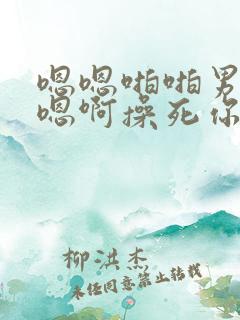 嗯嗯啪啪男
嗯啊操死你
柳洪杰
未经同意禁止转载